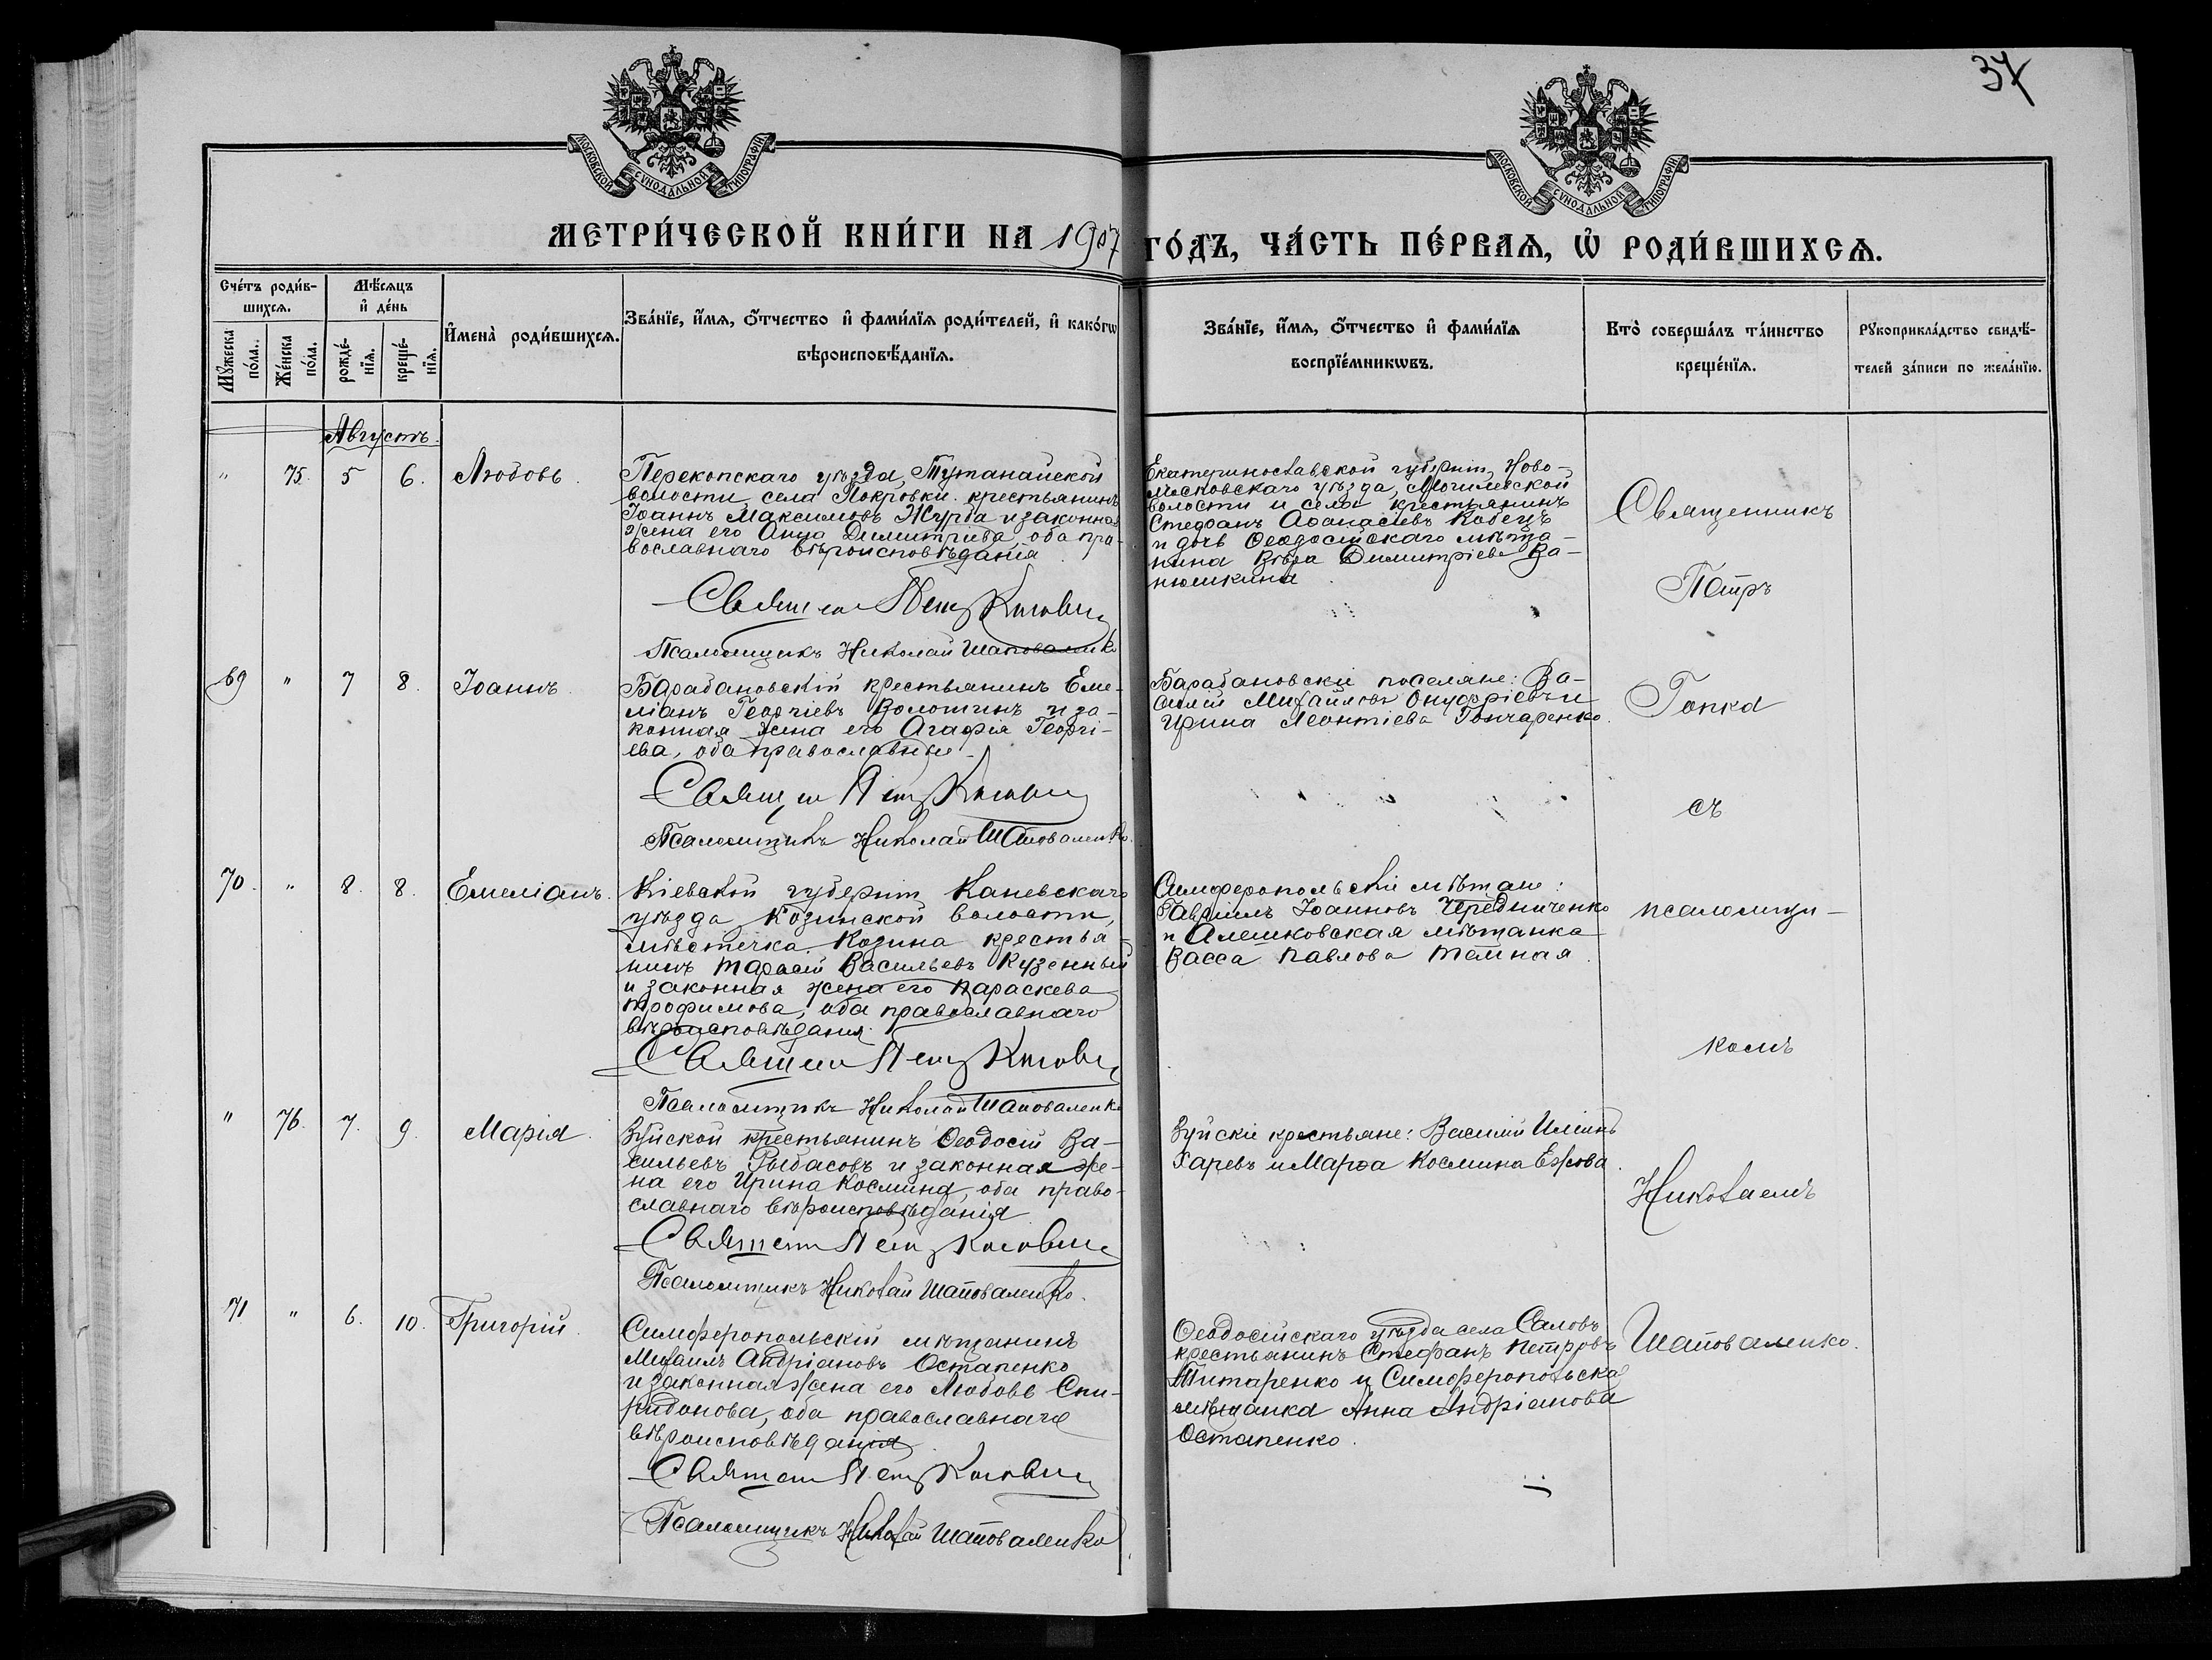 37
МОСКОВСКОЙ СУНОДАЛЬНОЙ ТИПОГРАФІИ
МОСКОВСКОЙ СУНОДАЛЬНОЙ ТИПОГРАФІИ
МЕТРИ́ЧЕСКОЙ КНИ́ГИ НА 1907 ГО́ДЪ, ЧА́СТЬ ПЕ́РВАЯ, Ѡ҆ РОДИ́ВШИХСѦ.
Сче́тъ роди́в-
шихсѧ.
Мꙋ́жеска по́ла.
Же́нска по́ла.
Мѣ́сяцъ
и҆ де́нь
рожде́-
нїѧ.
креще́-
нїѧ.
И҆мена̀ роди́вшихсѧ.
Зва́нїе, и҆́мѧ, ѻ҆́тчество и҆ фами́лїѧ роди́телей, и҆ како́гѡ
вѣроисповѣ́данїѧ.
Зва́нїе, и҆́мѧ, ѻ҆́тчество и҆ фами́лїѧ
воспрїе́мникѡвъ.
Кто̀ соверша́лъ та́инство
креще́нїѧ.
Рꙋкоприкла́дство свидѣ́-
телей за́писи по жела́нїю.
Августъ.
" 75. 5 6. Любовь.
Перекопскаго уѣзда, Тутанайской
волости села Покровки крестьянинъ
Іоаннъ Максимовъ Журба и законная
жена его Анна Димитріева, оба пра-
вославнаго вѣроисповѣданія.
Священ Петр
Псаломщикъ Николай Шаповаленко
Екатеринославской губерніи, Ново-
московскаго уѣзда, Могилевской
волости и села крестьянинъ
Стефанъ Аѳанасіевъ Кобецъ
и дочь Ѳеодосійскаго мѣща-
нина Вѣра Димитріева Ва-
нюшкина.
Священникъ
Петръ
69 " 7 8. Іоаннъ.
Барабановскій крестьянинъ Еме-
ліанъ Георгіевъ Волошинъ и за-
конная жена его Агафія Георгі-
ева, оба православные.
Священ Петр
Псаломщикъ Николай Шаповаленко.
Барабановскіе поселяне: Ва-
силій Михайловъ Онуфріевъ и
Ирина Леонтіева Гончаренко.
Гопка
съ
70. " 8. 8. Емеліанъ.
Кіевской губерніи Каневскаго
уѣзда, Козинской волости,
мѣстечка Козина крестья-
нинъ Тарасій Васильевъ Кузенный
и законная жена его Параскева
Трофимова, оба православнаго
вѣроисповѣданія.
Священ Петр
Псаломщикъ Николай Шаповаленко
Симферопольскіе мѣщане:
Гавріилъ Іоанновъ Чередниченко
и Алешковская мѣщанка
Васса Павлова Темная.
псаломщи-
комъ
" 76. 7. 9. Марія.
Зуйской крестьянинъ Ѳеодосій Ва-
сильевъ Рыбасовъ и законная же-
на его Ирина Космина, оба право-
славнаго вѣроисповѣданія.
Священ Петр
Псаломщикъ Николай Шаповаленко.
Зуйскіе крестьяне: Василій Иліинъ
Харевъ и Марѳа Космина Ежова.
Николаемъ
71 " 6. 10. Григорій.
Симферопольскій мѣщанинъ
Михаилъ Андріановъ Остапенко
и законная жена его Любовь Спи-
ридонова, оба православнаго
вѣроисповѣданія.
Священ Петр
Псаломщикъ Николай Шаповаленко
Ѳеодосійскаго уѣзда села Саловъ
крестьянинъ Стефанъ Петровъ
Титаренко и Симферопольская
мѣщанка Анна Андріанова
Остапенко.
Шаповаленко.